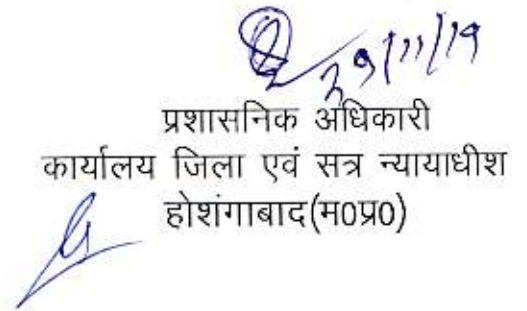 29/11/19
प्रशासनिक अधिकारी
कार्यालय जिला एवं सत्र न्यायाधीश
होशंगाबाद(म0प्र0)